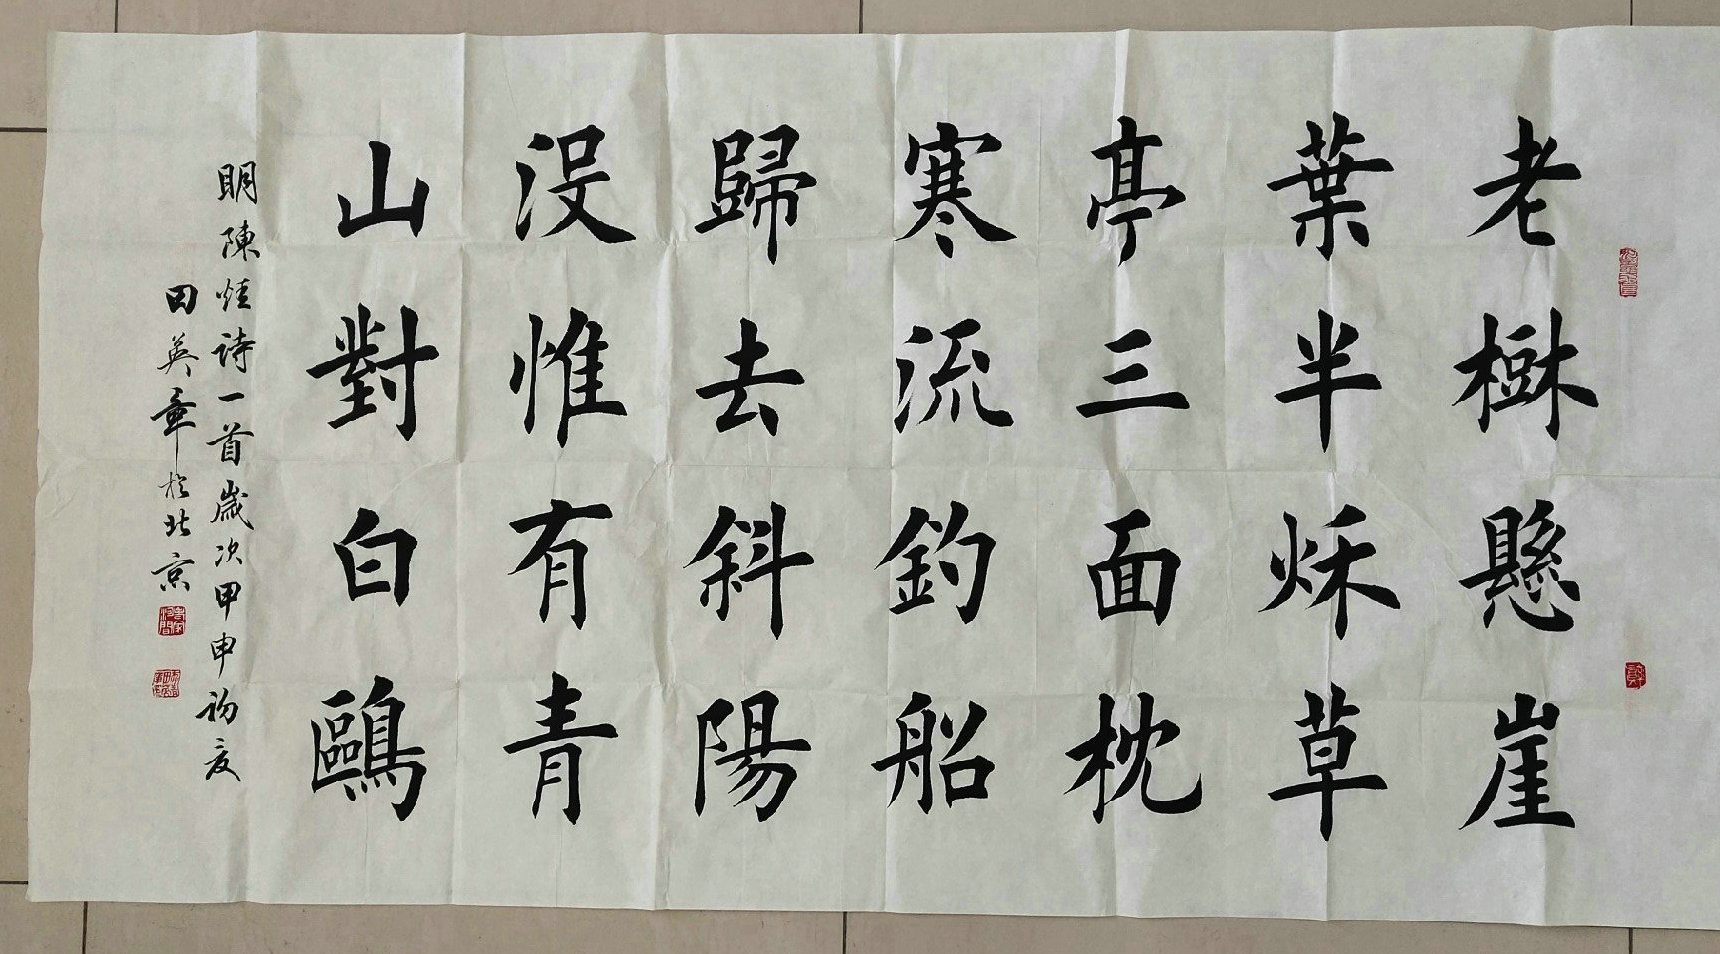 老樹懸崖
葉半秌草
亭三面枕
寒流釣船
歸去斜陽
没惟有青
山對白鷗
明陳烓詩一首歲次甲申初夏
田英章於北京